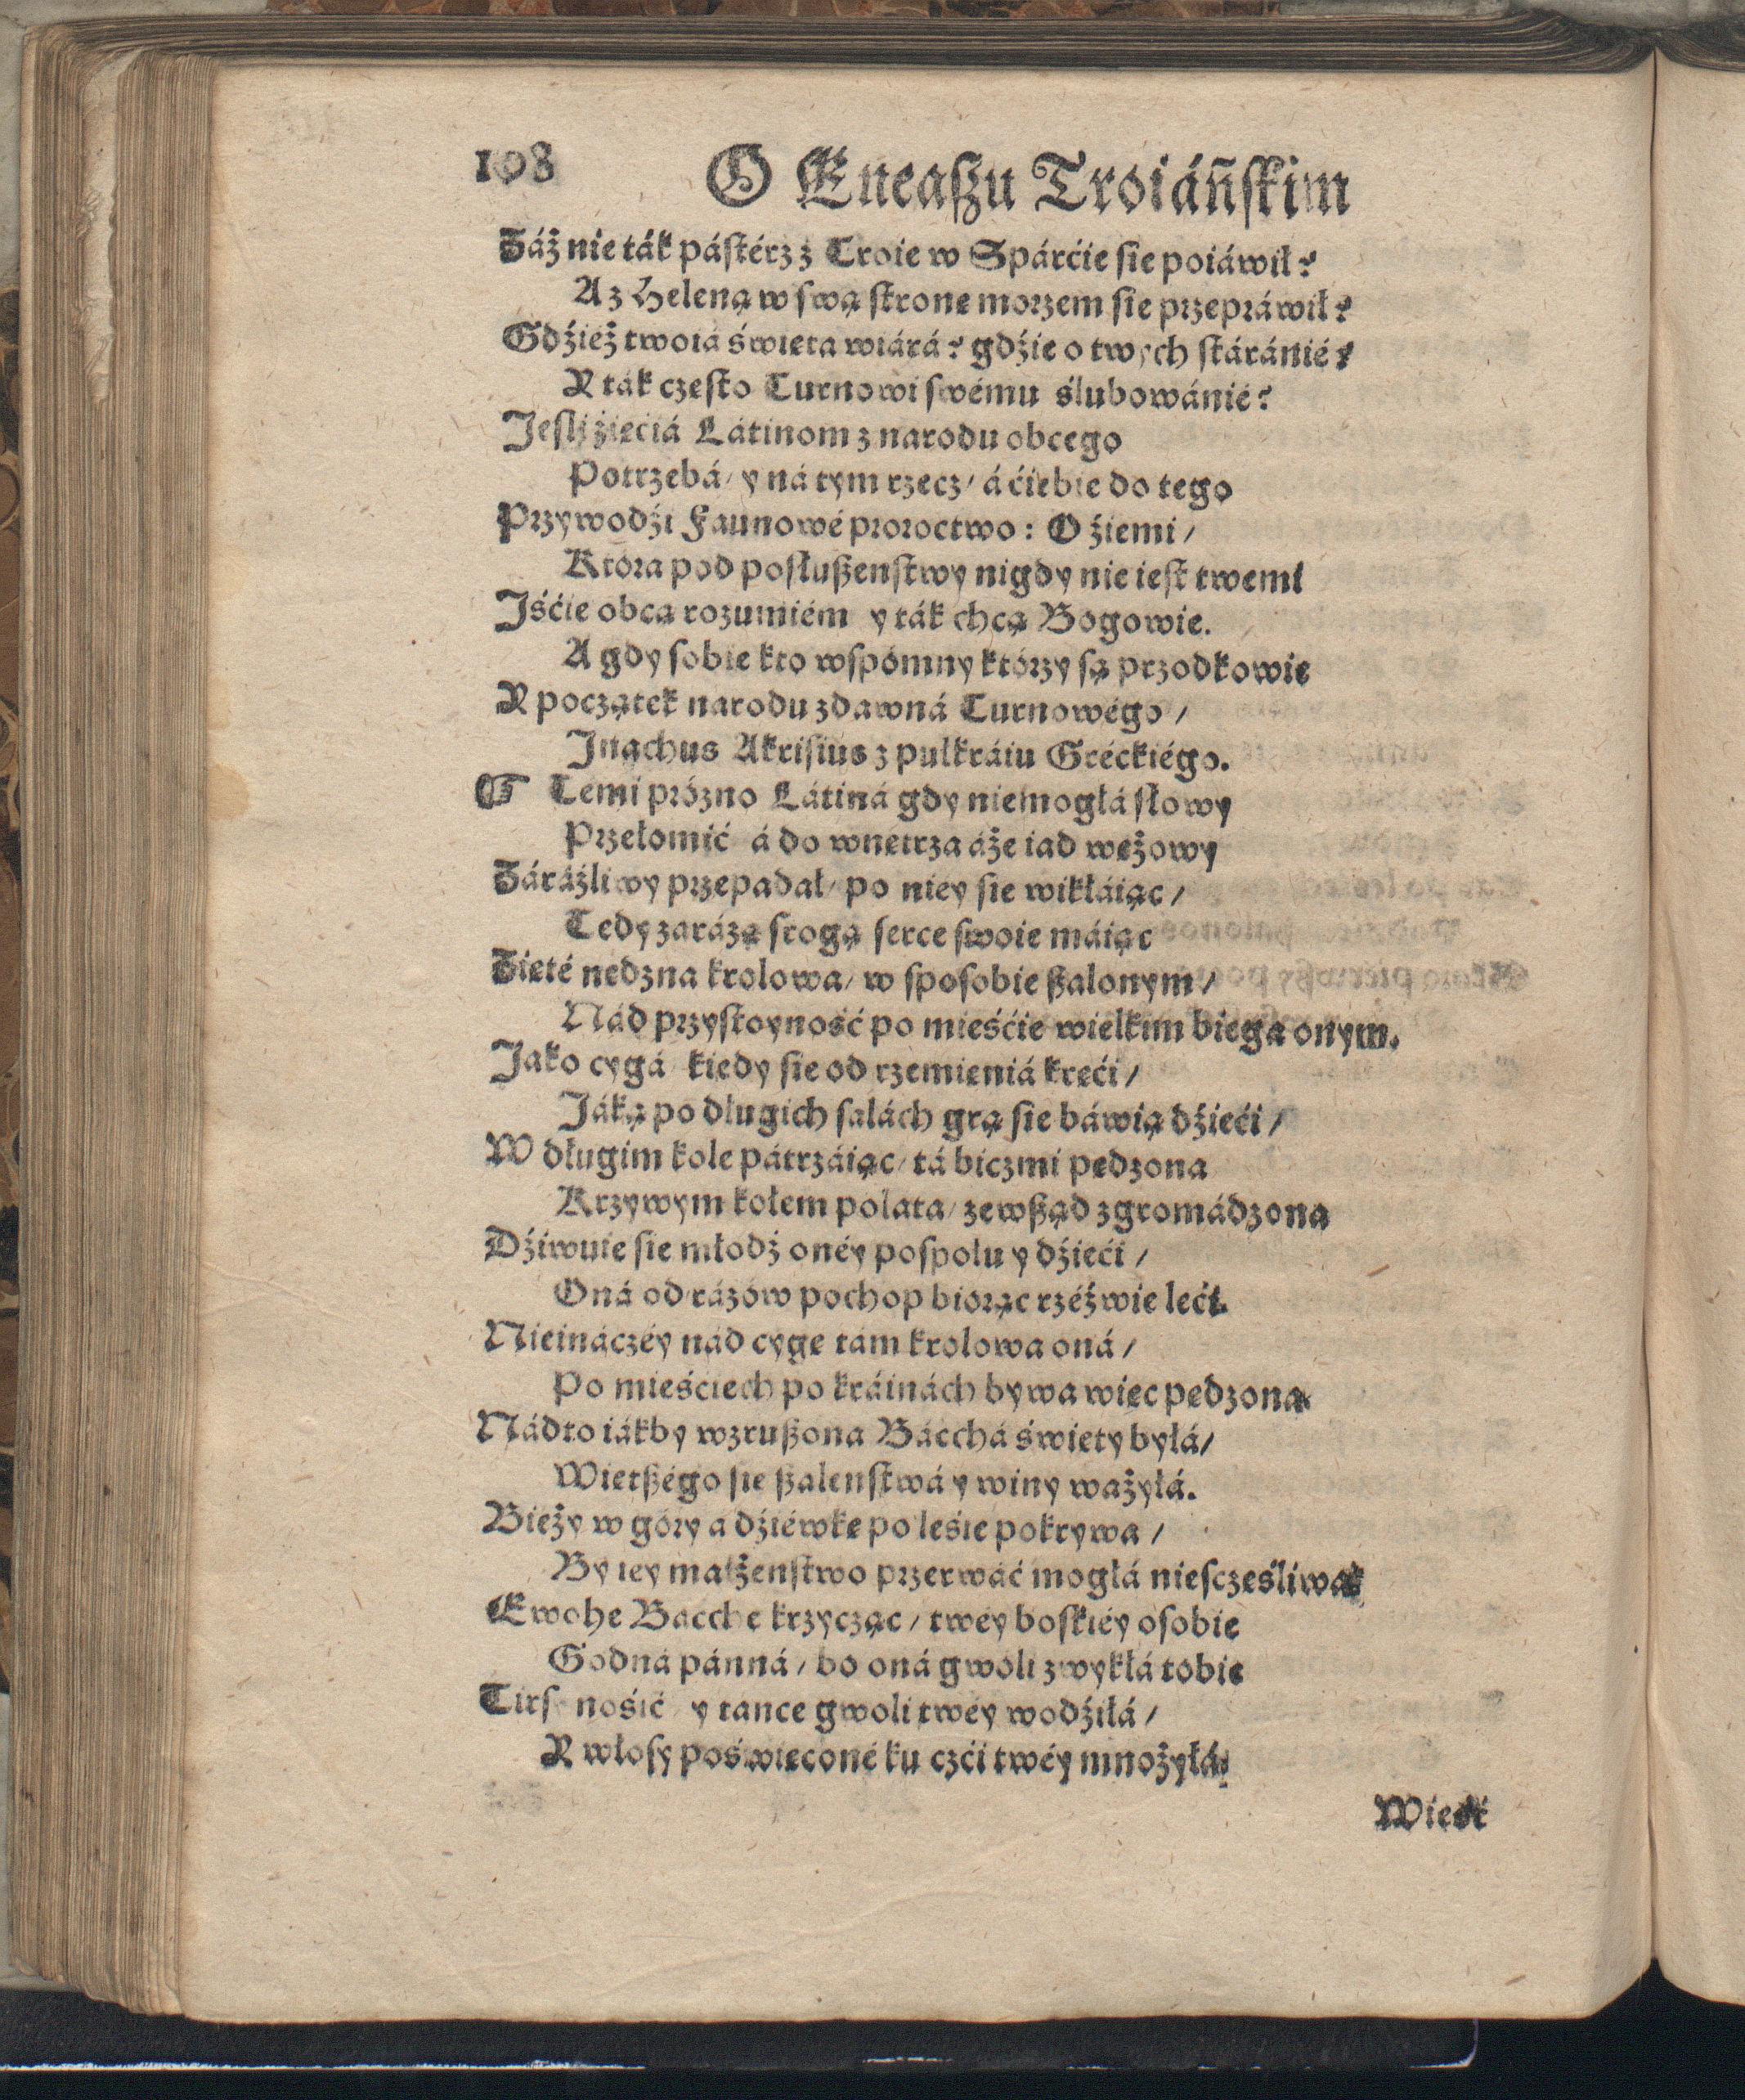 198 O Eneaszu Troiáńskim
Záż nie ták pástérz z Troie w Spárćie sie poiáwił?
A z Heleną w swą strone morzem sie przepráwił?
Gdźież twoiá święta wiárá? gdźie o twych stáránié?
Y ták często Turnowi swému ślubowánié?
Jesli źięćiá Látinom z narodu obcego
Potrzebá/ y ná tym rzecz/ á ćiebie do tego
Przywodźi Faunowé proroctwo: O źiemi/
Która pod posłuszeństwy nigdy nie iest twemi
Jśćie obcą rozumiém y ták chcą Bogowie.
A gdy sobie kto wspómny którzy są przodkowie
Y początek narodu zdawná Turnowégo/
Jnachus Akrisius z pulkráiu Gréckiégo.
Temi prózno Látiná gdy niemogłá słowy
Przełomić á do wnętrza áże iad wężowy
Záráźliwy przepadał/ po niey sie wikłáiąc/
Tedy zarázą srogą serce swoie máiąc
Zięté nędzna krolowa/ w sposobie szalonym/
Nád przystoyność po mieśćie wielkim biega onym.
Jako cygá kiedy sie od rzemieniá kręći/
Jáką po długich salách grą sie báwią dźieći/
W długim kole pátrzáiąc/ tá biczmi pędzona
Krzywym kołem polata/ zewsząd zgromádzona
Dźiwuie sie młodź onéy pospołu y dźieći/
Oná od rázów pochop biorąc rzéźwie leći.
Nieináczéy nád cygę tám krolowa oná/
Po mieśćiech po kráinách bywa więc pędzona.
Nádto iákby wzruszona Bácchá święty byłá/
Więtszégo sie szaleństwá y winy ważyłá.
Bieży w góry a dźiéwkę po leśie pokrywa/
By iey małżeństwo przerwáć mogłá niesczęśliwa
Ewohe Bacche krzycząc/ twéy boskiéy osobie
Godná pánná/ bo oná gwoli zwykłá tobie
nośić y tańce gwoli twéy wodźiłá/
Y włosy poświęconé ku czći twéy mnożyłá:
Wieść